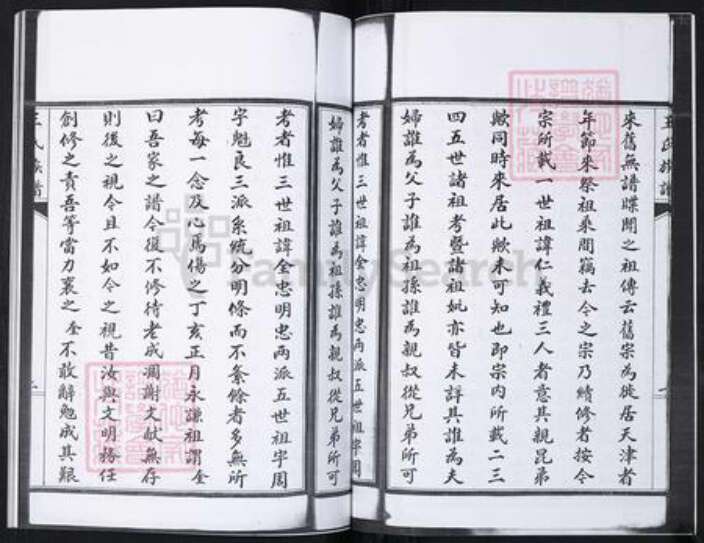 王氏族譜
來舊無譜牒聞之祖傳云舊宗為徙居天津者
年節來祭祖乘間竊去今之宗乃續修者按今
宗所載一世祖諱仁義禮三人者意其親兄弟
歟同時來居此歟未可知也即宗內所載二三
四五世諸祖考暨諸祖妣亦皆未詳其誰為夫
婦誰為父子誰為祖孫誰為親叔從兄弟所可
考者惟三世祖諱金忠明忠兩派五世祖字周
婦誰為父子誰為祖孫誰為親叔從兄弟所可
考者惟三世祖諱金忠明忠兩派五世祖字周
字魁良三派系統分明條而不紊餘者多無所
考每一念及心焉傷之丁亥正月永謙祖謂金
曰吾家之譜今復不修待老成凋謝文献無存
則後之視今且不如今之視昔汝與文明務任
創修之責吾等當力襄之金不敢辭勉成其艱
王氏族譜
FamilySearch